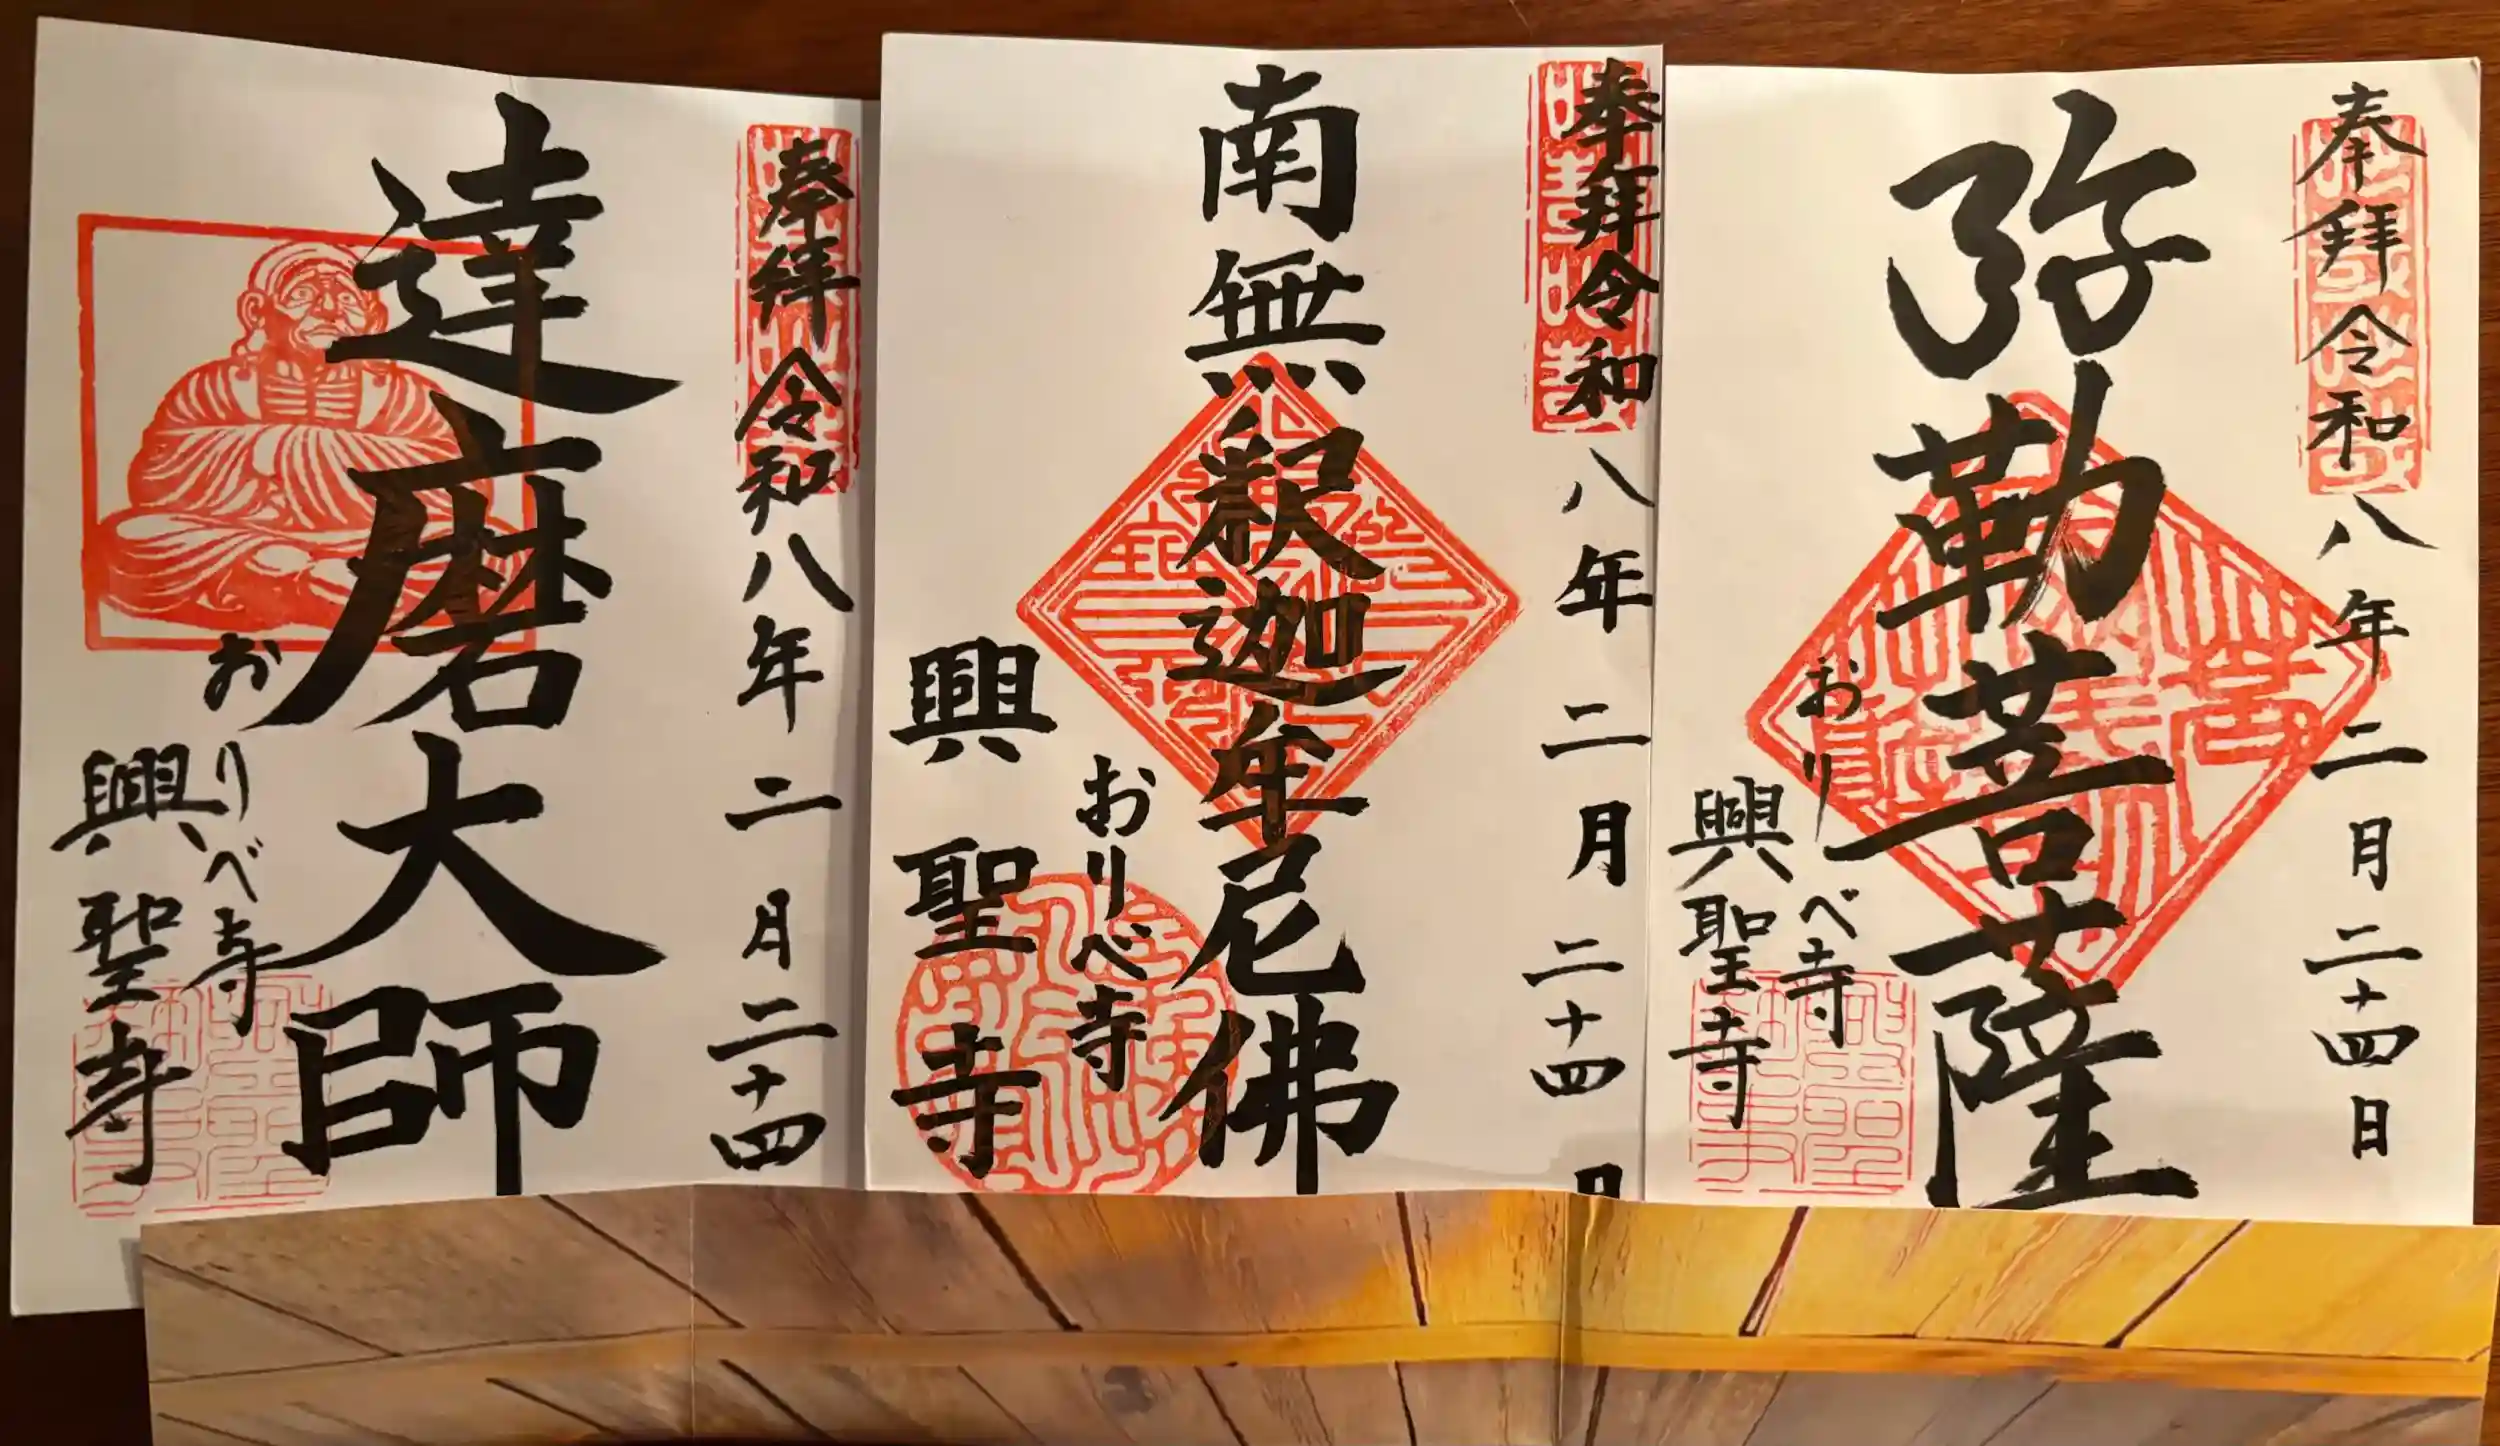 奉拝 令和八年二月二十四日
弥勒菩薩
おりべ寺
興聖寺
奉拝 令和八年二月二十四日
南無釈迦牟尼佛
おりべ寺
興聖寺
奉拝 令和八年二月二十四
達磨大師
おりべ寺
興聖寺